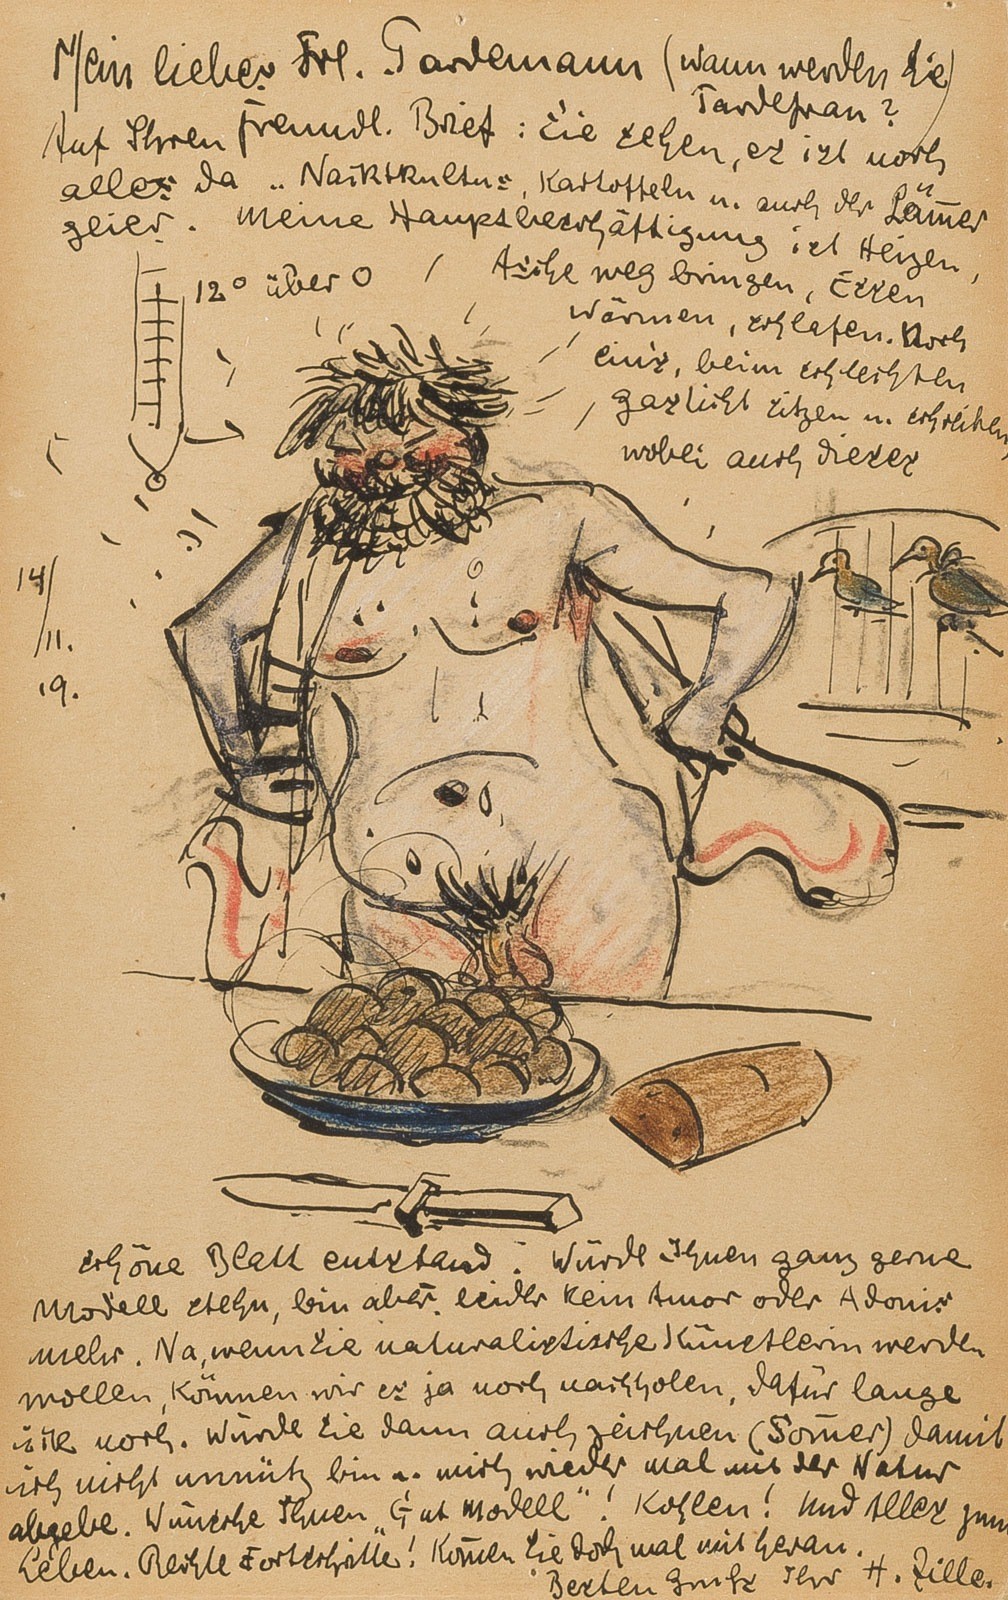 Mein liebes Frl. Tardemann (wann werden Sie
Tardefrau?)
Auf Ihren freundl. Brief: Sie sehen, es ist noch
alles da „Nacktkultur, Kartoffeln u. auch der Lämmer
geier. Meine Hauptbeschäftigung ist Heizen,
Asche weg bringen, Essen
wärmen, schlafen. Noch
eins, beim schlechten
Gaslicht sitzen u. schreiben,
wobei auch dieses
12° über 0
14/
/11.
19.
schöne Blatt entstand. Würde Ihnen ganz gerne
Modell stehn, bin aber leider kein Amor oder Adonis
mehr. Na, wenn Sie naturalistische Künstlerin werden
wollen, können wir es ja noch nachholen, dafür lange
ich noch. Würde Sie dann auch zeichnen (Som̄er) damit
ich nicht unnütz bin u. mich wieder mal mit der Natur
abgebe. Wünsche Ihnen „Gut Modell"! Kohlen! Und Alles zum
Leben. Rechte Fortschritte! Kom̄en Sie doch mal mit heran.
Besten Gruß Ihr H. Zille.